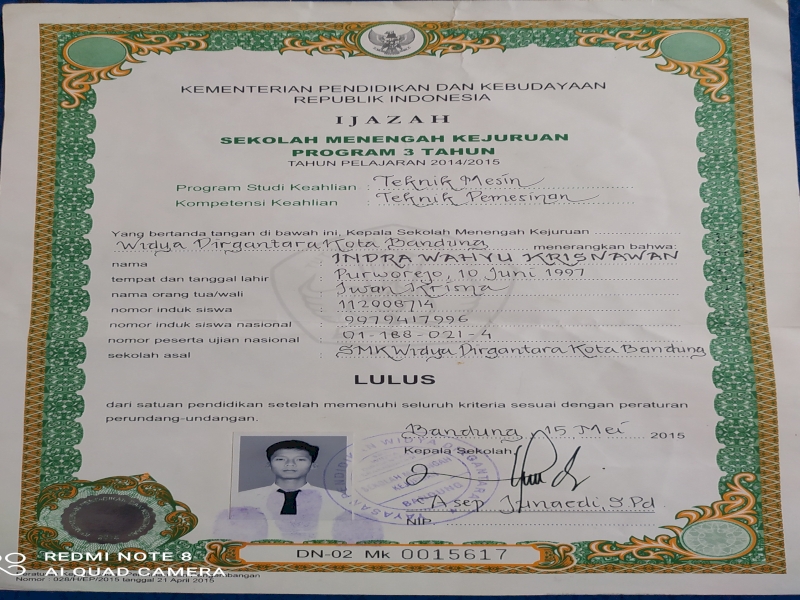 KEMENTERIAN PENDIDIKAN DAN KEBUDAYAAN
REPUBLIK INDONESIA
IJAZAH
SEKOLAH MENENGAH KEJURUAN
PROGRAM 3 TAHUN
TAHUN PELAJARAN 2014/2015
Program Studi Keahlian : Teknik Mesin
Kompetensi Keahlian : Teknik Pemesinan
Yang bertanda tangan di bawah ini, Kepala Sekolah Menengah Kejuruan
Widya Dirgantara Kota Bandung menerangkan bahwa:
nama : INDRA WAHYU KRISNAWAN
tempat dan tanggal lahir : Purworejo, 10 Juni 1997
nama orang tua/wali : Iwan Krisna
nomor induk siswa : 112008714
nomor induk siswa nasional : 9979417996
nomor peserta ujian nasional : 01-188-021-4
sekolah asal : SMK Widya Dirgantara Kota Bandung
LULUS
dari satuan pendidikan setelah memenuhi seluruh kriteria sesuai dengan peraturan
perundang-undangan.
Bandung, 15 Mei 2015
Kepala Sekolah,
YAYASAN PENDIDIKAN WIDYA DIRGANTARA
BANDUNG
Asep Junaedi, S.Pd
NIP.
DN-02 Mk 0015617
REDMI NOTE 8
AI QUAD CAMERA
Nomor : 028/H/EP/2015 tanggal 21 April 2015